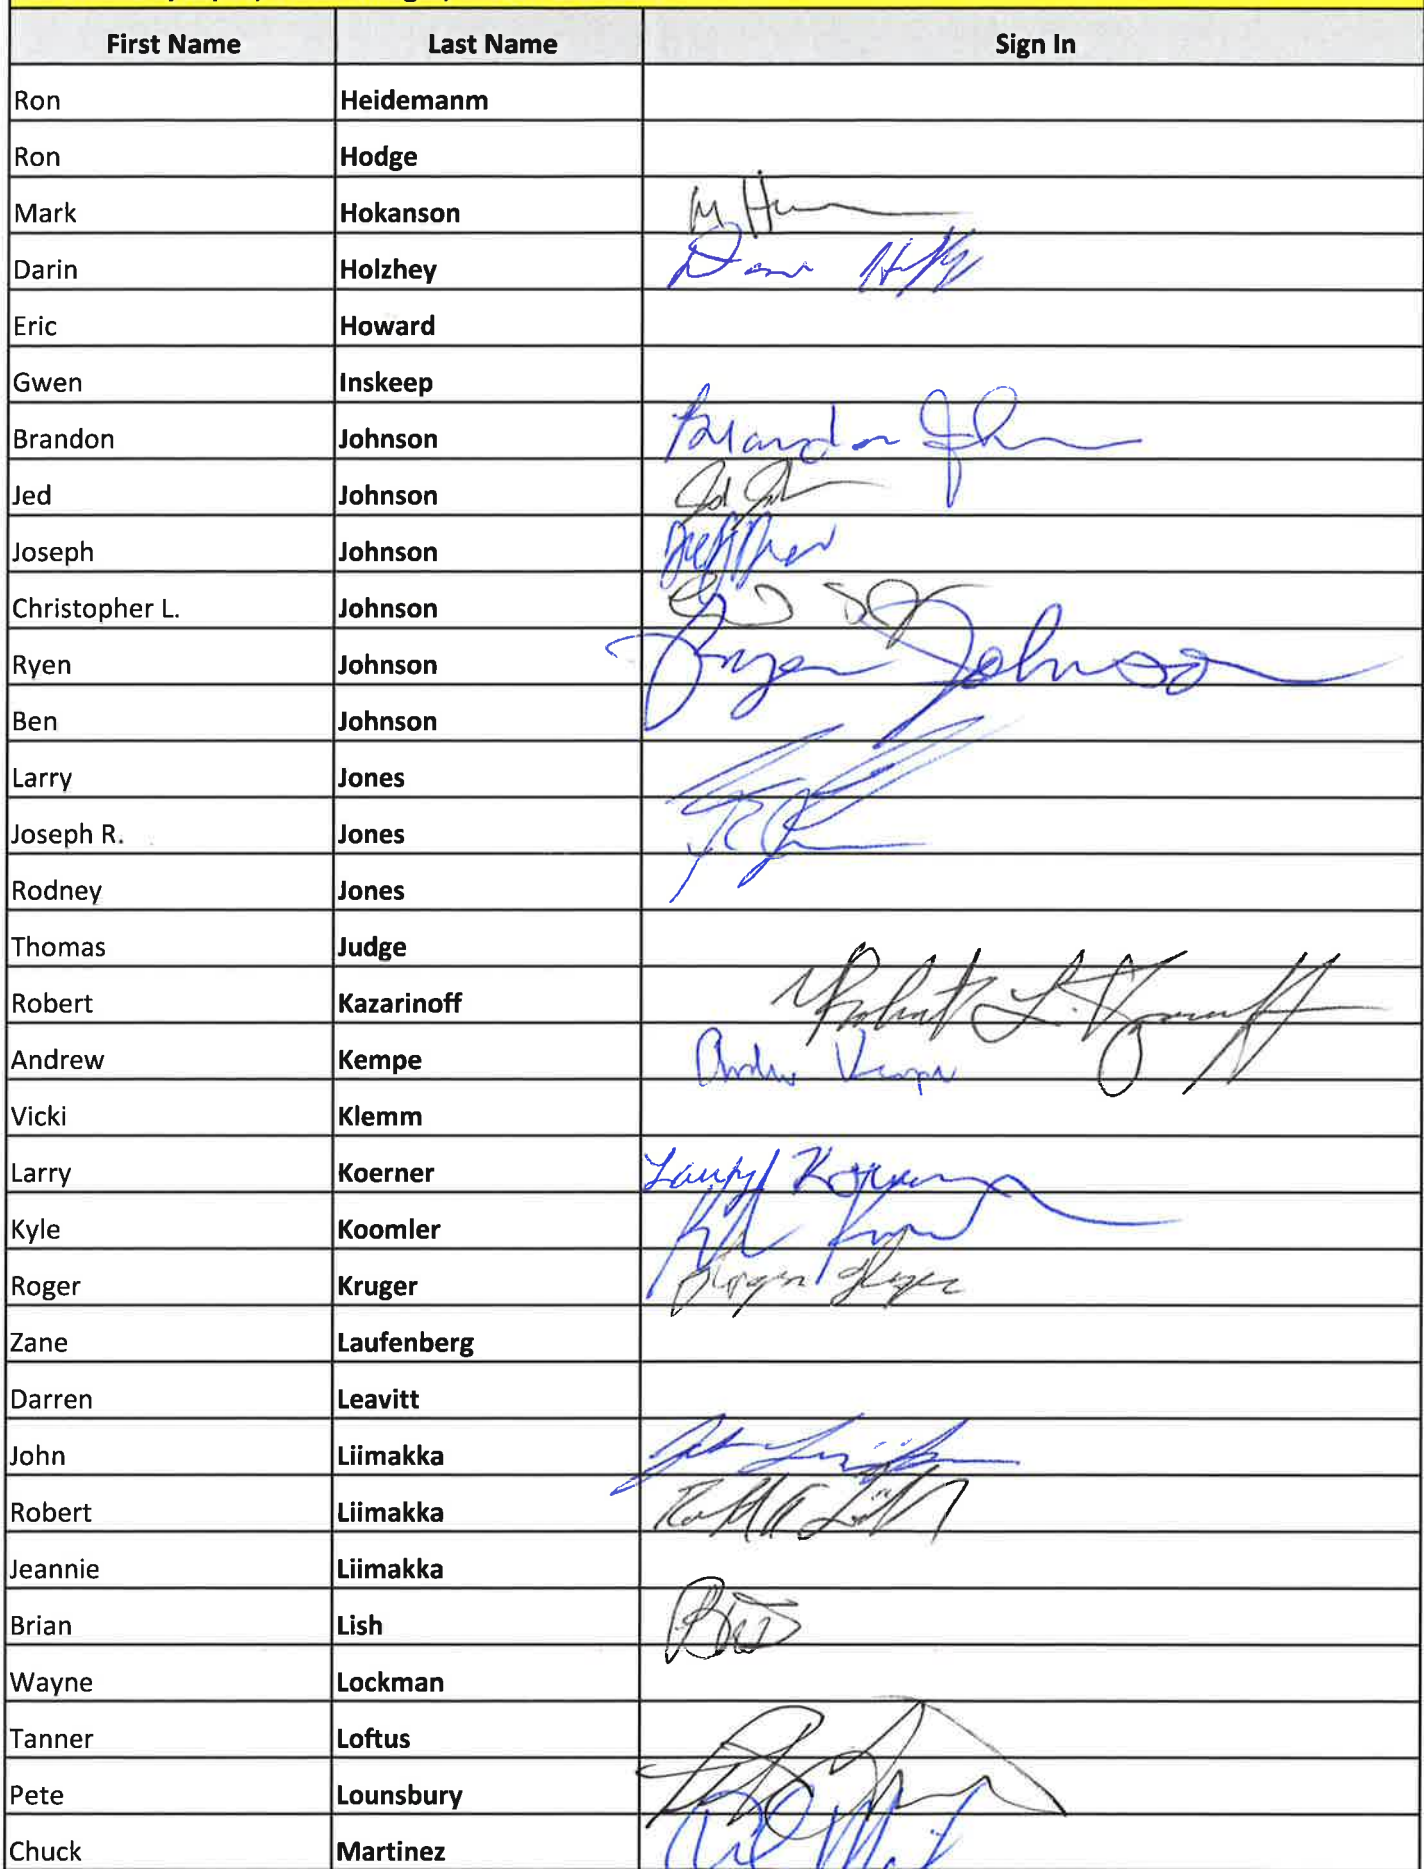 First Name Last Name Sign In
Ron Heidemanm
Ron Hodge
Mark Hokanson M H
Darin Holzhey
Eric Howard
Gwen Inskeep
Brandon Johnson Brandon
Jed Johnson Jed
Joseph Johnson
Christopher L. Johnson
Ryen Johnson Ryen Johnson
Ben Johnson
Larry Jones
Joseph R. Jones
Rodney Jones
Thomas Judge
Robert Kazarinoff Robert L. Kazarinoff
Andrew Kempe Andrew Kempe
Vicki Klemm
Larry Koerner Larry Koerner
Kyle Koomler
Roger Kruger Roger Kruger
Zane Laufenberg
Darren Leavitt
John Liimakka John
Robert Liimakka
Jeannie Liimakka
Brian Lish
Wayne Lockman
Tanner Loftus
Pete Lounsbury
Chuck Martinez